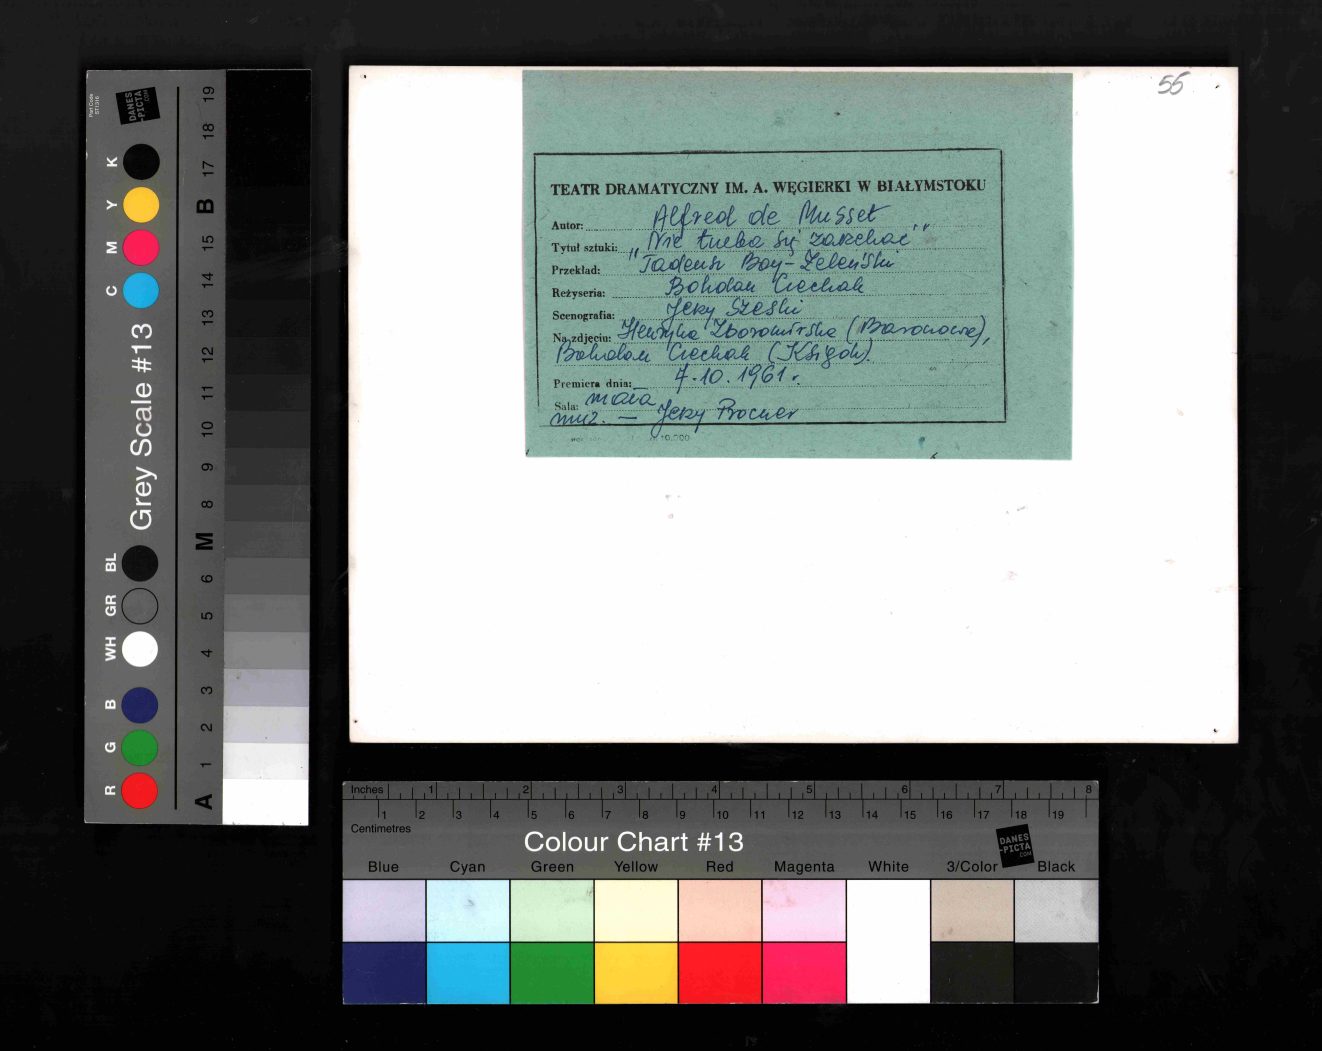 55
TEATR DRAMATYCZNY IM. A. WĘGIERKI W BIAŁYMSTOKU
Autor: Alfred de Musset
Tytuł sztuki: „Nie trzeba się zarzekać"
Przekład: Tadeusz Boy-Żeleński
Reżyseria: Bohdan Czechak
Scenografia: Jerzy Szeski
Na zdjęciu: Henryka (Baronowa),
Bohdan Czechak (Ksiądz).
Premiera dnia: 7.10.1961 r.
Sala: mała
muz. — Jerzy Procner
10.000
Part Code
DANES
-PICTA
.COM
Grey Scale #13
K Y M C
BL GR WH B G R
A 1 2 3 4 5 6 M 8 9 10 11 12 13 14 15 B 17 18 19
Inches 1 2 3 4 5 6 7 8
1 2 3 4 5 6 7 8 9 10 11 12 13 14 15 16 17 18 19
Centimetres
Colour Chart #13
DANES
-PICTA
.COM
Blue Cyan Green Yellow Red Magenta White 3/Color Black